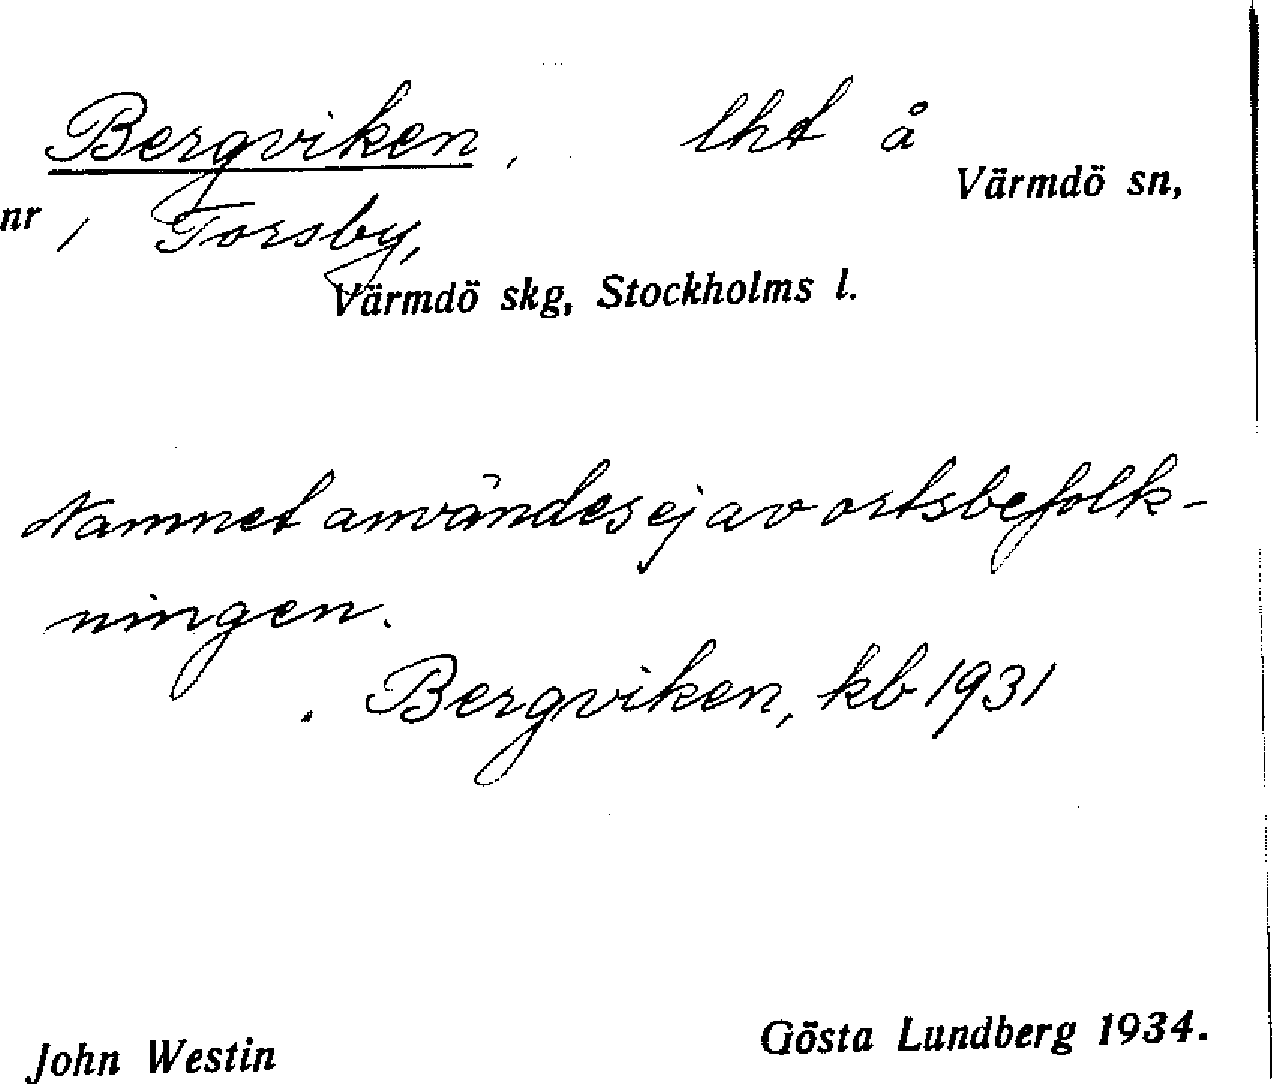 Bergviken, lht å
Värmdö sn,
nr 1 Torsby,
Värmdö skg, Stockholms l.
Namnet användes ej av ortsbefolk-
ningen.
Bergviken, kb 1931
John Westin
Gösta Lundberg 1934.